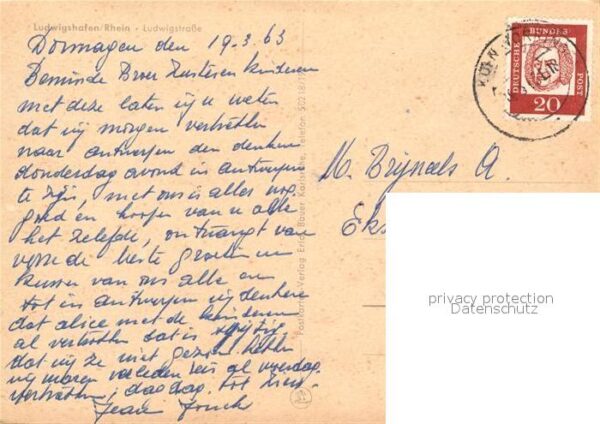 Ludwigshafen/Rhein - Ludwigstraße
Dormagen den 19-3-63
Beminde Broer Zusteren kinderen
met deze laten wij u weten
dat wij morgen vertrekken
naar antwerpen den denken
donderdag avond in antwerpen
te zijn, met ons is alles nog
goed en hopen van u alle
het zelfde, ontvangt van
de beste groeten en
kussen van ons alle en
tot in antwerpen wij denken
dat alice met de kinderen
al vertrokken dat is spijtig
dat wij ze niet gezien hebben
wij waren verleden reis al woensdag
vertrokken, dag dag. tot ziens.
Jean
M. Brijnels A.
Eks
DEUTSCHE BUNDES POST
20
KÖLN
Postkarten-Verlag Erich Bauer Karlsruhe, Telefon 50218
privacy protection
Datenschutz